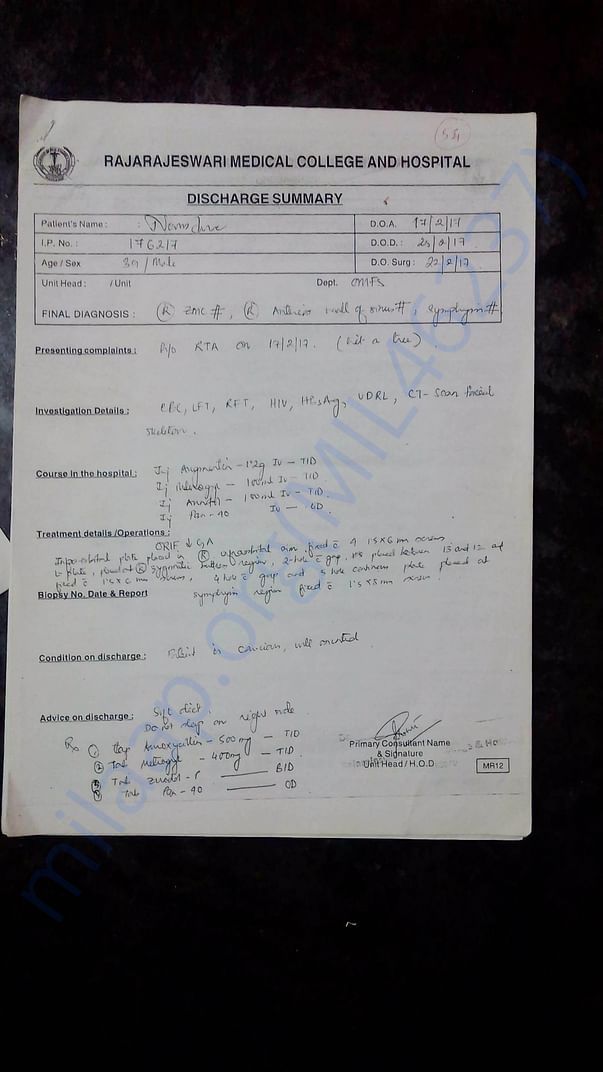 54
RAJARAJESWARI MEDICAL COLLEGE AND HOSPITAL
DISCHARGE SUMMARY
Patient's Name :
D.O.A. 17/2/17
I.P. No. : 176217
D.O.D. : 23/2/17
Age / Sex 39 / Male
D.O. Surg : 22/2/17
Unit Head : / Unit Dept. OMFS
FINAL DIAGNOSIS : (R) ZMC #, (R) wall of sinus #, symphysis #
Presenting complaints : H/o RTA on 17/2/17. (hit a tree)
Investigation Details : CBC, LFT, RFT, HIV, HBsAg, VDRL, CT-Scan facial
skeleton.
Course in the hospital : Inj Augmentin - 1.2g IV - TID
Inj Metrogyl - 100ml IV - TID
Inj - 100ml IV - TID
Inj Pan - 40 IV - OD
Treatment details /Operations : ORIF ↓ GA
Infraorbital plate placed in (R) infraorbital rim, fixed c̄ 4 1.5 x 6 mm screws
L-plate, placed at (R) zygomatic buttress region, 2-hole c̄ gap placed between 13 and 12 and
fixed c̄ 1.5 x 6 mm screws, 4 hole c̄ gap and 5 hole continuous plate placed at
Biopsy No. Date & Report
symphysis region fixed c̄ 1.5 x 8 mm screws.
Condition on discharge : Patient is conscious, well oriented
Advice on discharge : Soft diet.
Do not sleep on right side
Rx (1) Cap Amoxycillin - 500 mg - TID
(2) Tab Metrogyl - 400mg - TID
(3) Tab - P BID
(4) Tab Pan - 40 OD
Primary Consultant Name
& Signature
Unit Head / H.O.D
MR12
milaap.org(MIL46237)